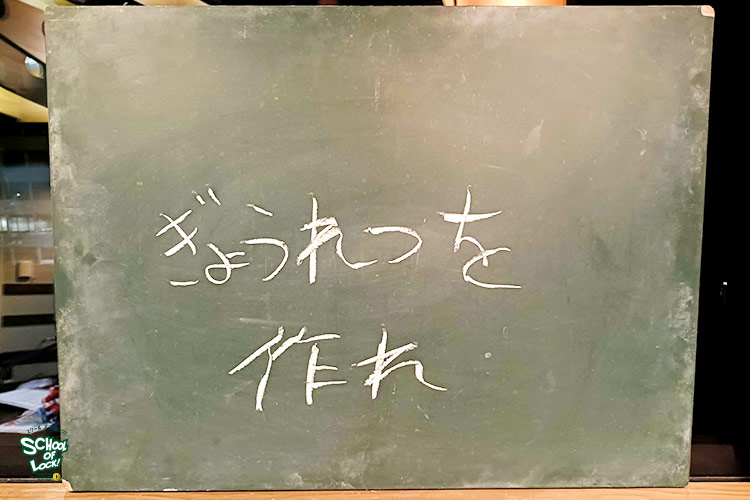 ぎょうれつを
作れ
SCHOOL
OF
LOCK!